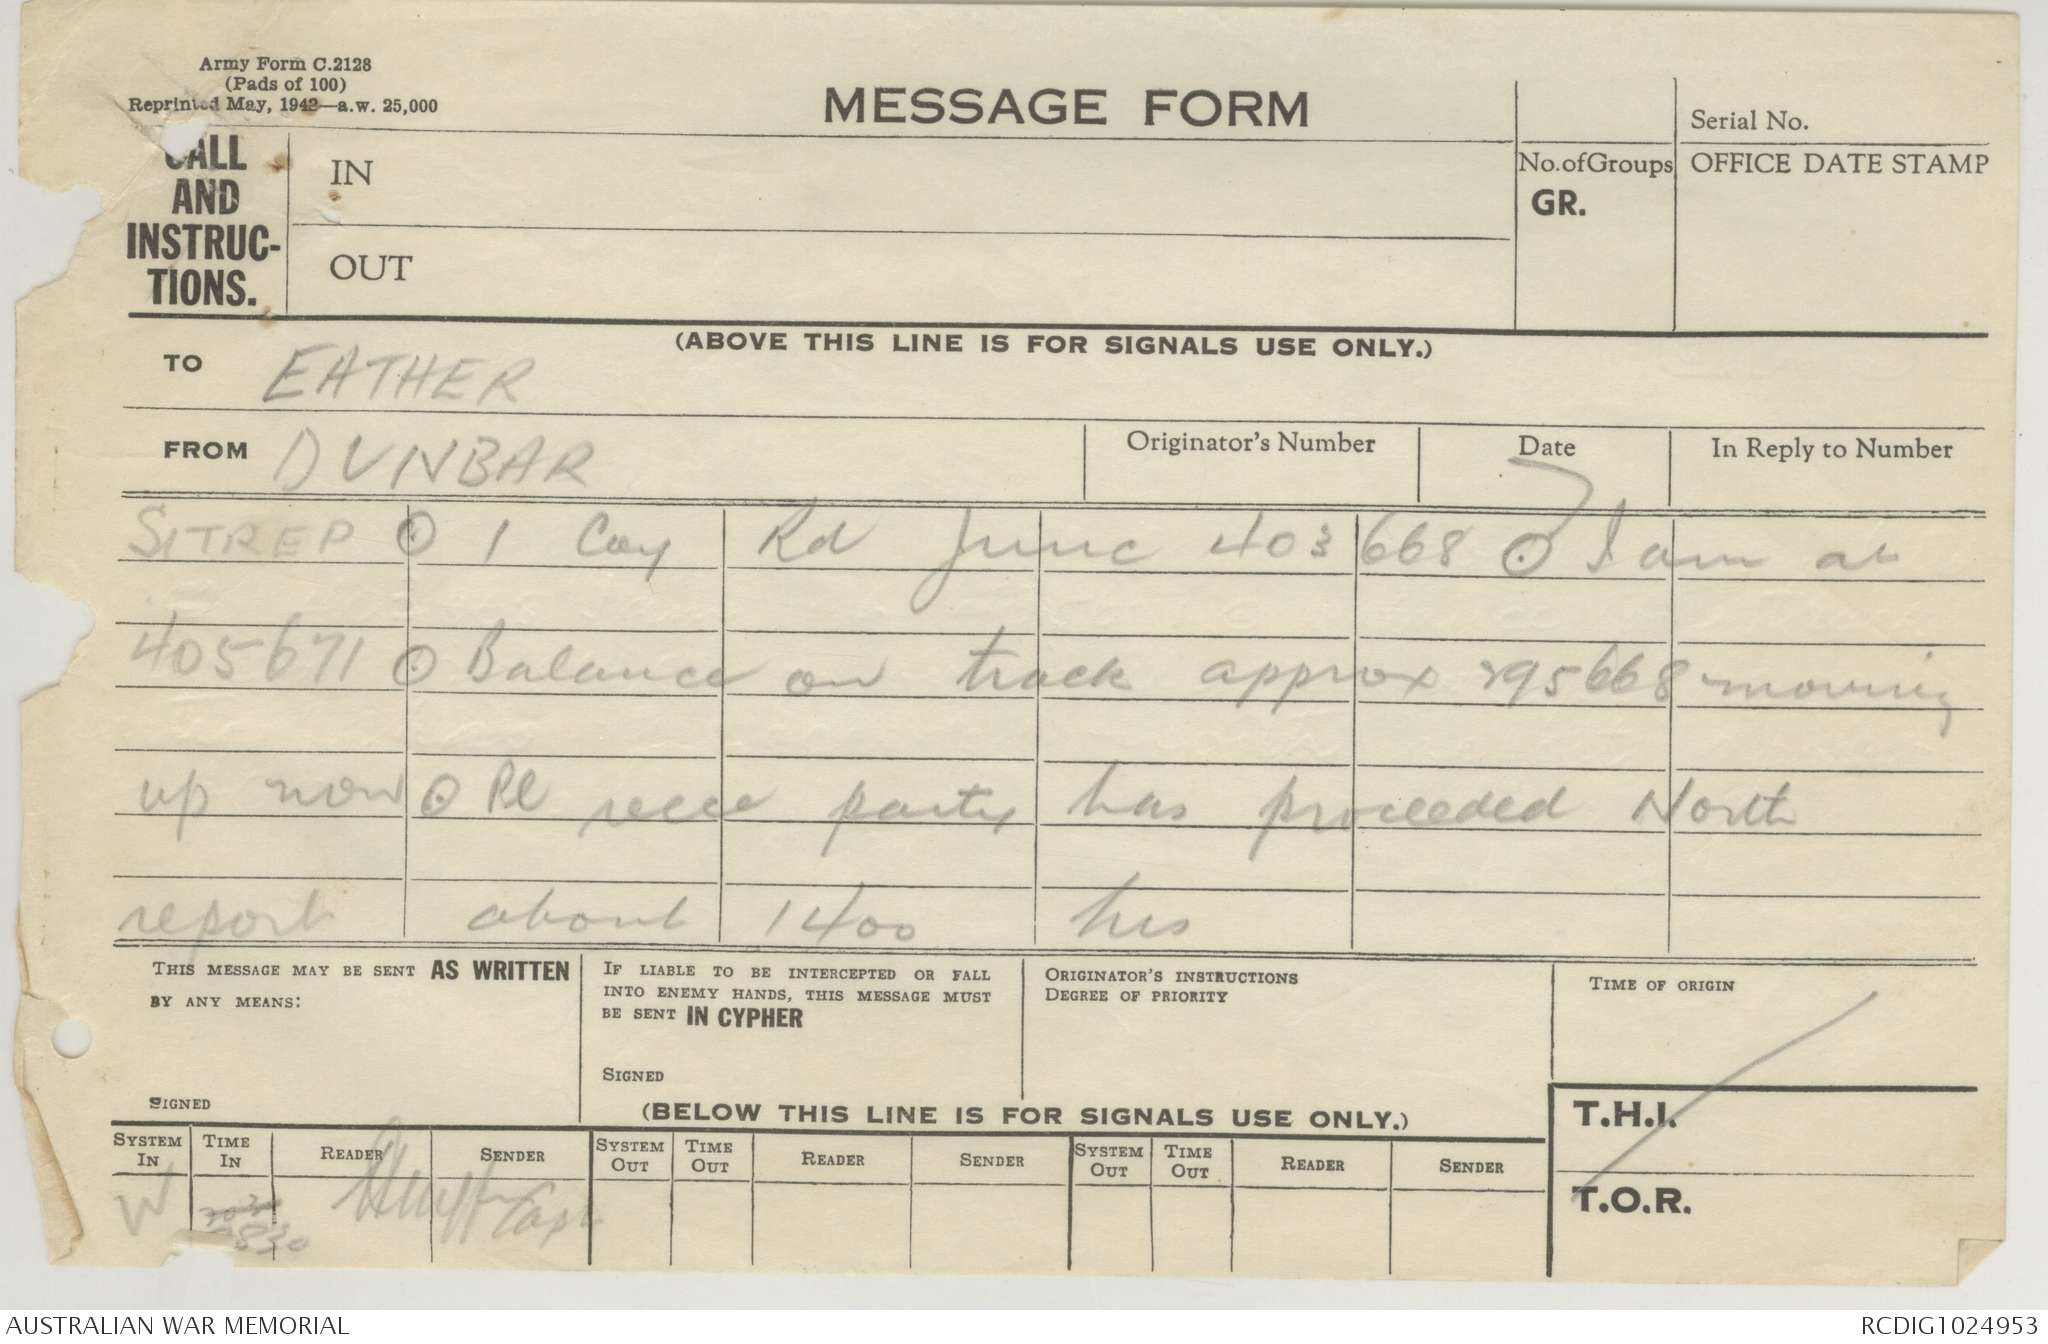 Army Form C.2128
(Pads of 100)
Reprinted May, 1942—a.w. 25,000
MESSAGE FORM
Serial No.
CALL
AND
INSTRUC-
TIONS.
IN
OUT
No. of Groups
GR.
OFFICE DATE STAMP
(ABOVE THIS LINE IS FOR SIGNALS USE ONLY.)
TO EATHER
FROM DUNBAR
Originator's Number
Date
In Reply to Number
SITREP ⊙ 1 Coy Rd Junc 403668 ⊙ I am at
405671 ⊙ Balance on track approx 395668 moving
up now ⊙ Pl recce party has proceeded North
report about 1400 hrs
THIS MESSAGE MAY BE SENT AS WRITTEN
BY ANY MEANS:
SIGNED
IF LIABLE TO BE INTERCEPTED OR FALL
INTO ENEMY HANDS, THIS MESSAGE MUST
BE SENT IN CYPHER
SIGNED
ORIGINATOR'S INSTRUCTIONS
DEGREE OF PRIORITY
TIME OF ORIGIN
(BELOW THIS LINE IS FOR SIGNALS USE ONLY.)
T.H.I.
T.O.R.
SYSTEM IN
TIME IN
READER
SENDER
SYSTEM OUT
TIME OUT
READER
SENDER
SYSTEM OUT
TIME OUT
READER
SENDER
W
Capt
AUSTRALIAN WAR MEMORIAL
RCDIG1024953